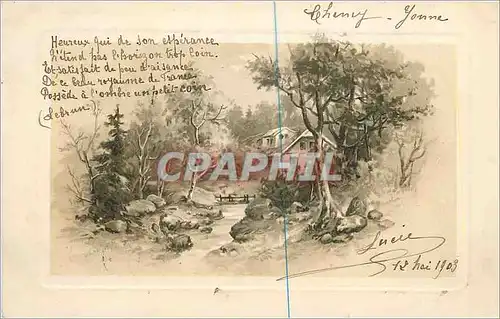 Chemy - Yonne
Heureux qui de son espérance
N'étend pas l'horizon trop loin.
Et satisfait de peu d'aisance
De ce beau royaume de France
Possède à l'ombre un petit coin
(Lebrun)
CPAPHIL.com
Lucie
12 Mai 1903